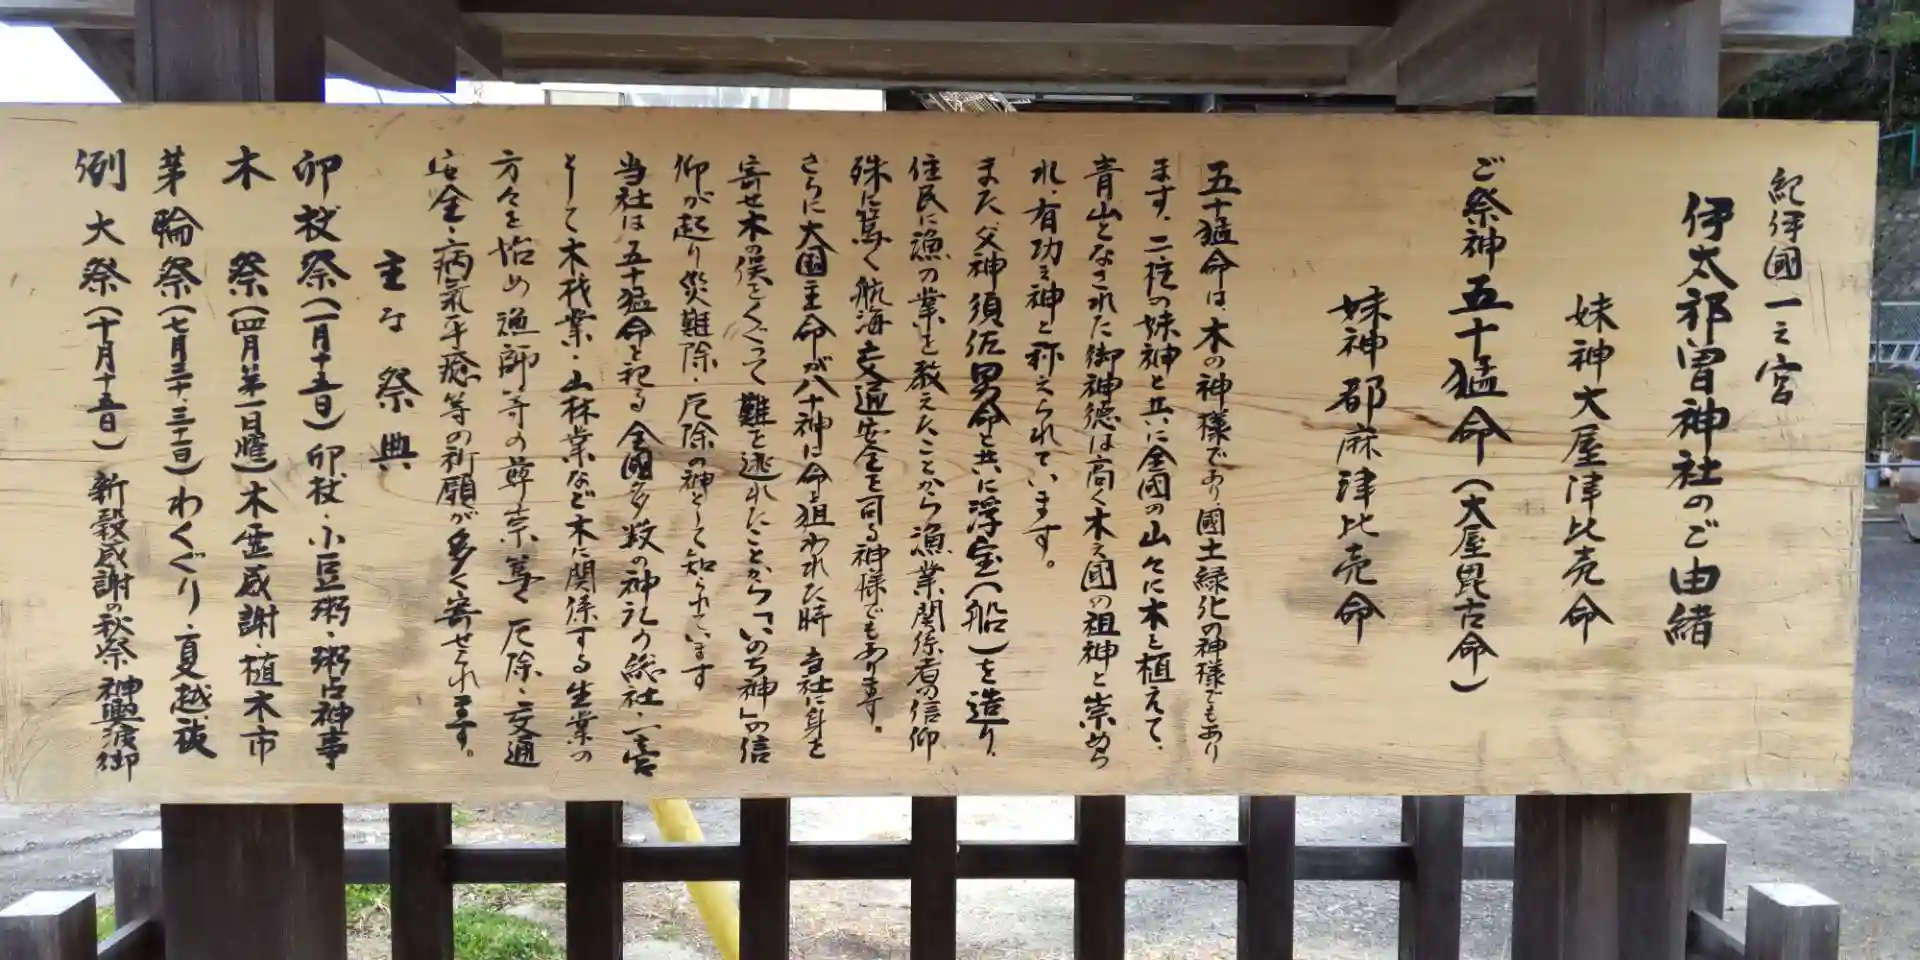 紀伊國一之宮
伊太祁曽神社のご由緒
妹神大屋津比売命
ご祭神 五十猛命（大屋毘古命）
妹神都麻津比売命
五十猛命は、木の神様であり國土緑化の神様でもあり
ます。二柱の妹神と共に全国の山々に木を植えて、
青山となされた御神徳は高く木之國の祖神と崇めら
れ、有功之神と称えられています。
また、父神須佐男命と共に浮宝（船）を造り、
住民に漁の業を教えたことから漁業関係者の信仰
殊に篤く航海交通安全を司る神様でもあります。
さらに大国主命が八十神に命を狙われた時 当社に身を
寄せ木の俣をくぐって難を逃れたことから「いのち神」の信
仰が起り災難除・厄除の神として知られています
当社は五十猛命を祀る全國多数の神社の総社・一宮
として木材業・山林業など木に関係する生業の
方々を始め漁師等の尊崇篤く厄除・交通
安全・病気平癒等の祈願が多く寄せられます。
主な祭典
卯杖祭（一月十五日）卯杖・小豆粥・粥占神事
木祭（四月第一日曜）木霊感謝・植木市
茅輪祭（七月三十、三十一日）わくぐり・夏越祓
例大祭（十月十五日）新穀感謝の秋祭 神輿渡御